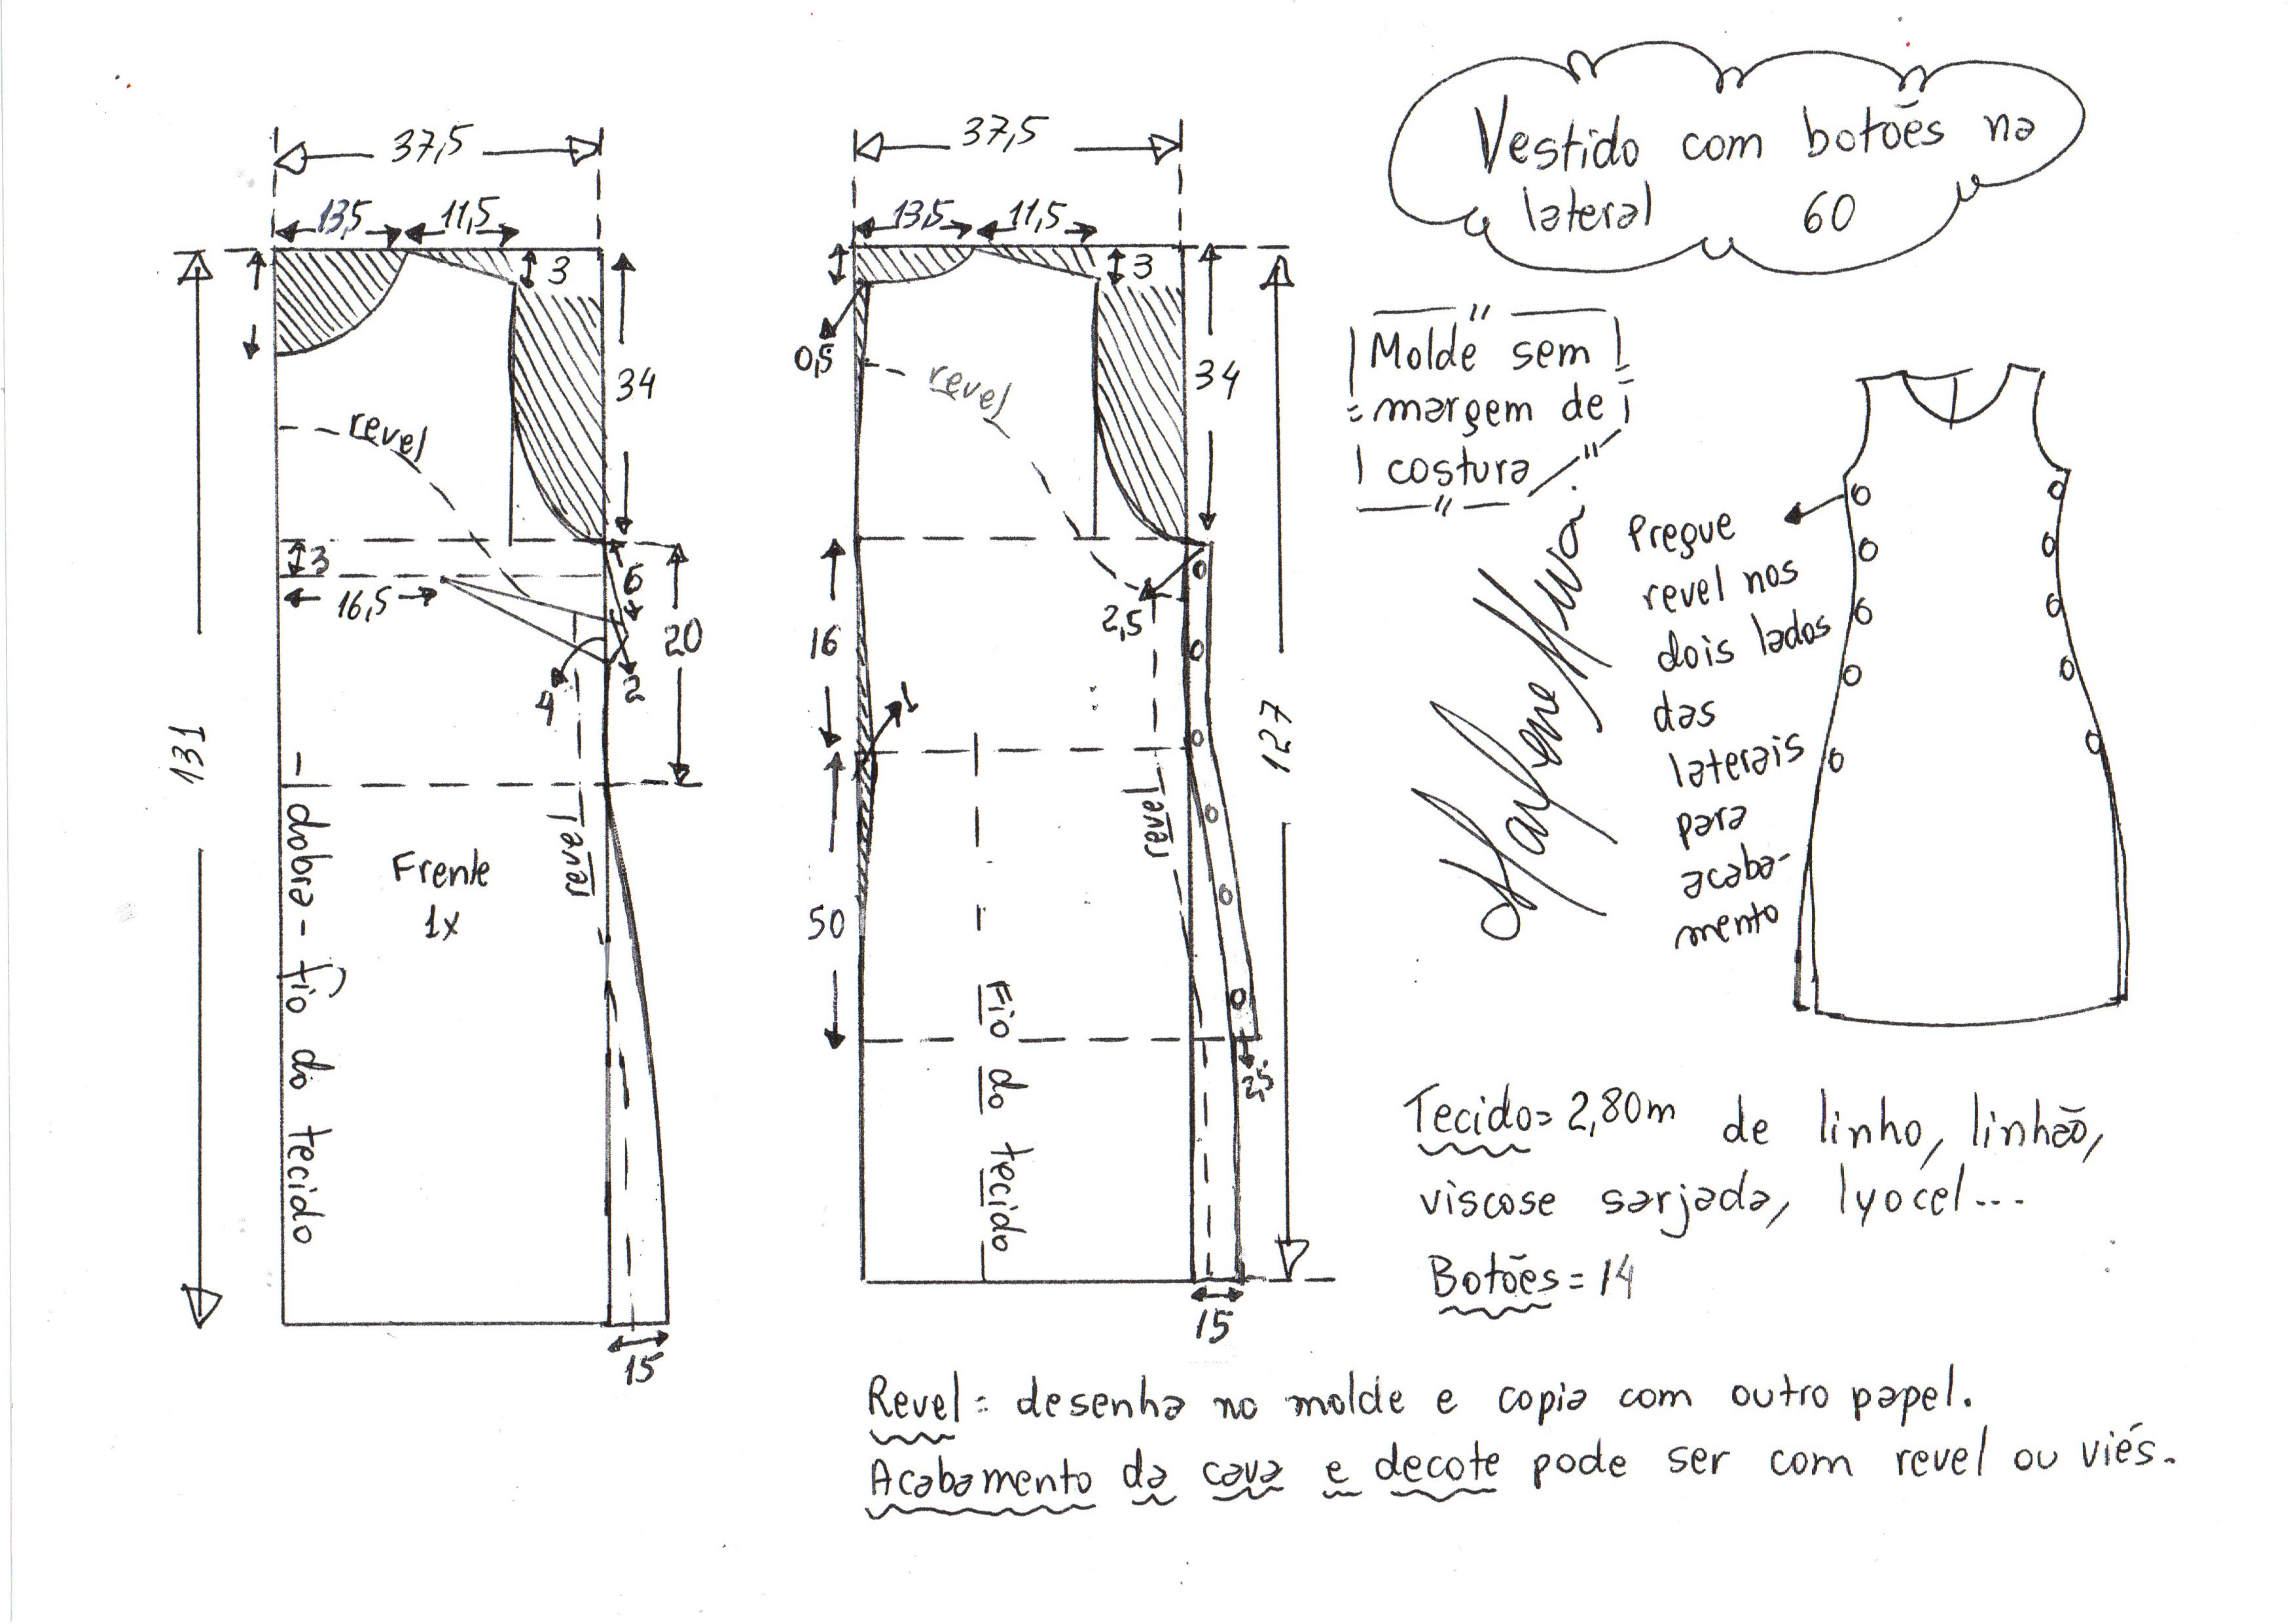 Vestido com botões na
lateral 60
37,5
13,5 11,5
3
34
revel
3
16,5
6
20
4
2
131
dobra - fio do tecido
Frente
1x
revel
15
37,5
13,5 11,5
3
0,5
revel
34
16
2,5
1
127
revel
50
Fio do tecido
2,5
15
Molde sem
margem de
costura
Marlene Mukai
Pregue
revel nos
dois lados
das
laterais
para
acaba-
mento
Tecido= 2,80m de linho, linhão,
viscose sarjada, lyocel...
Botões = 14
Revel = desenha no molde e copia com outro papel.
Acabamento da cava e decote pode ser com revel ou viés.